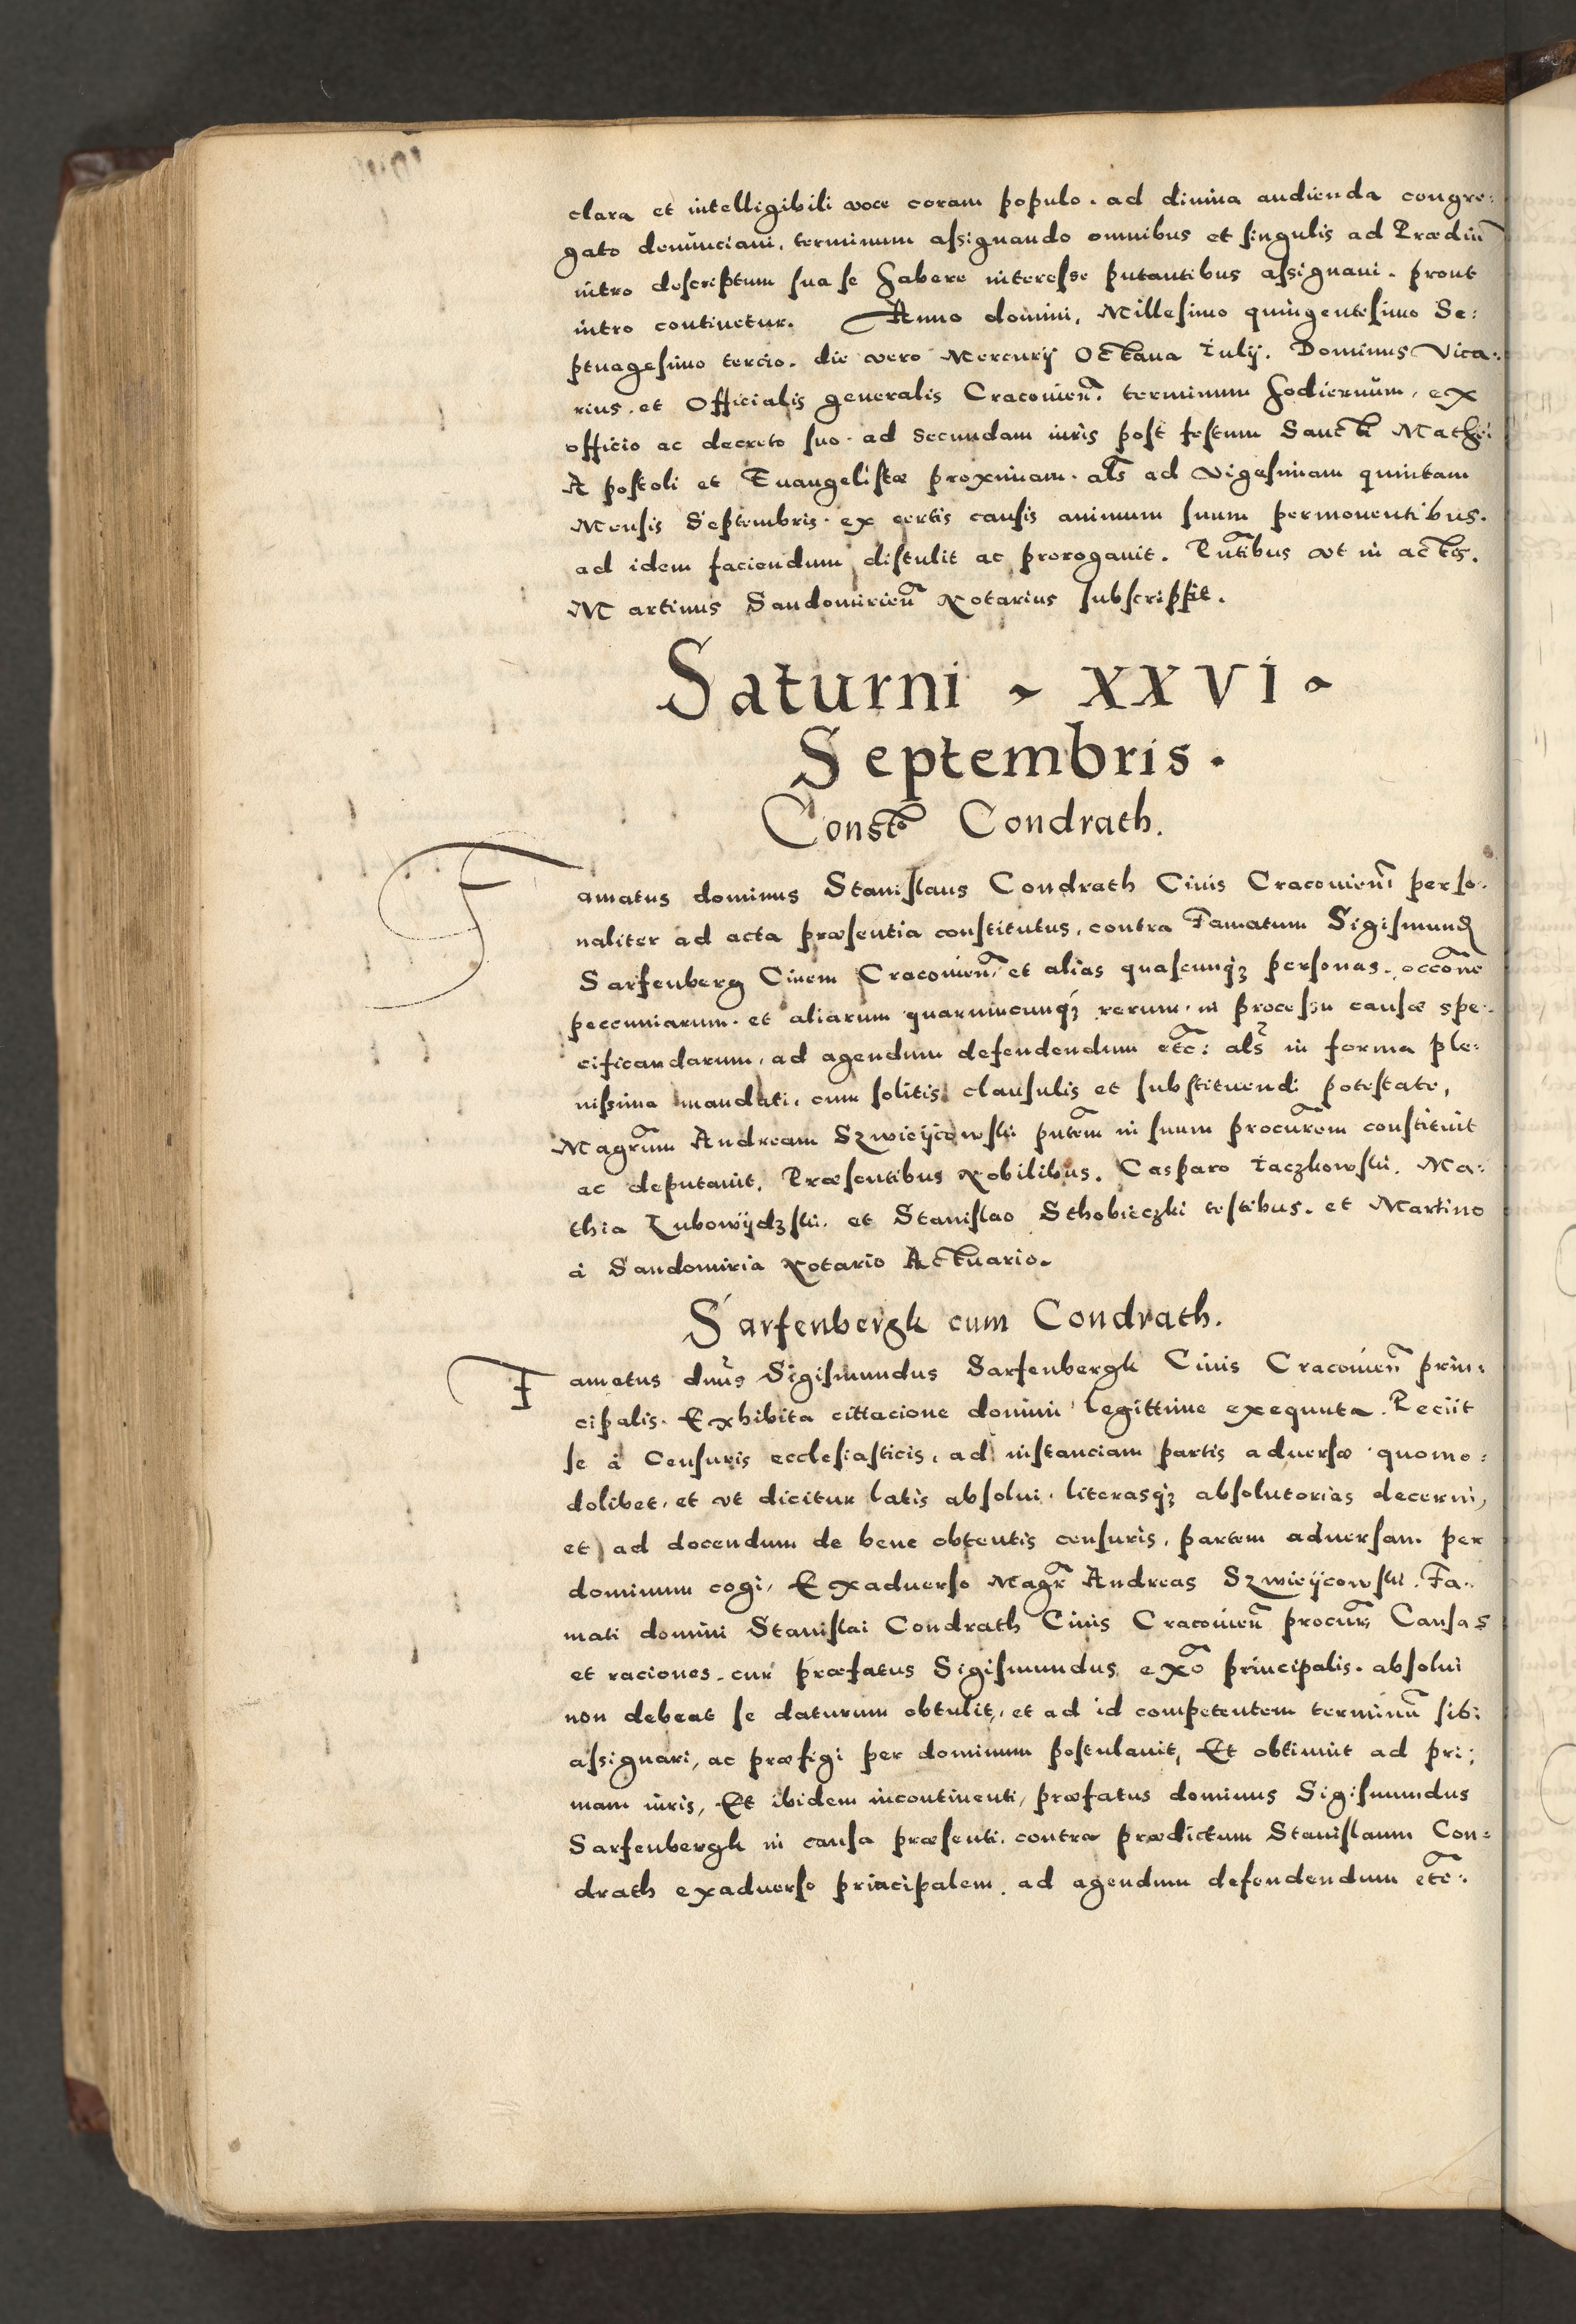 clara et intelligibili voce coram populo. ad diuina audienda congre:
gato denunciaui, terminum assignando omnibus et singulis ad Prædiũ
intro descriptum sua se habere interesse putantibus assignaui. prout
intro continetur. Anno domini, Millesimo quingentesimo Se:
ptuagesimo tercio. die vero Mercurij Octaua Iulij. Dominus Vica:
rius. et Officialis generalis Cracouieñ. terminum hodiernum, ex
officio ac decreto suo. ad Secundam iuris post festum Sancti Mathei
Apostoli et Euangelistæ proximam. als̃ ad Vigesimam quintam
Mensis Septembris. ex certis causis animum suum permouentibus.
ad idem faciendum distulit ac prorogauit. Pñtibus vt in actis.
Martinus Sandomirieñ Notarius subscripsit.
Saturni ~ XXVI ~
Septembris.
Consto Condrath.
Famatus dominus Stanislaus Condrath Ciuis Cracouieñ perso:
naliter ad acta præsentia constitutus, contra Famatum Sigismund
Sarfenberg Ciuem Cracouieñ, et alias quascunqz personas. occõne
peccuniarum. et aliarum quarumcunqz rerum. in processu causæ spe:
cificandarum, ad agendum defendendum etc̃: als̃ in forma ple:
nissima mandati. cum solitis clausulis et substituendi potestate,
Magr̃um Andream Szwieÿcowski pñtem in suum procur̃em constituit
ac deputauit. Præsentibus Nobilibus. Casparo Iaczkowski. Ma:
thia Lubowÿdzski. et Stanislao Sthobieczki testibus. et Martino
à Sandomiria Notario Actuario.
Sarfenbergk cum Condrath.
Famatus dñus Sigismundus Sarfenbergk Ciuis Cracouieñ prin:
cipalis. Exhibita cittacione domini legittime exequuta. Peciit
se à Censuris ecclesiasticis, ad instanciam partis aduersæ quomo:
dolibet, et vt dicitur latis absolui. literasqz absolutorias decerni,
et ad docendum de bene obtentis censuris, partem aduersam per
dominum cogi, Exaduerso Magr̃ Andreas Szwieÿcowski. Fa:
mati domini Stanislai Condrath Ciuis Cracouieñ procur̃ Causas
et raciones. cur præfatus Sigismundus exõ principalis. absolui
non debeat se daturum obtulit, et ad id competentem terminũ sibi
assignari, ac præfigi per dominum postulauit, Et obtinuit ad pri:
mam iuris, Et ibidem incontinenti, præfatus dominus Sigismundus
Sarfenbergk in causa præsenti. contra prædictum Stanislaum Con:
drath exaduerso principalem, ad agendum defendendum etc̃: